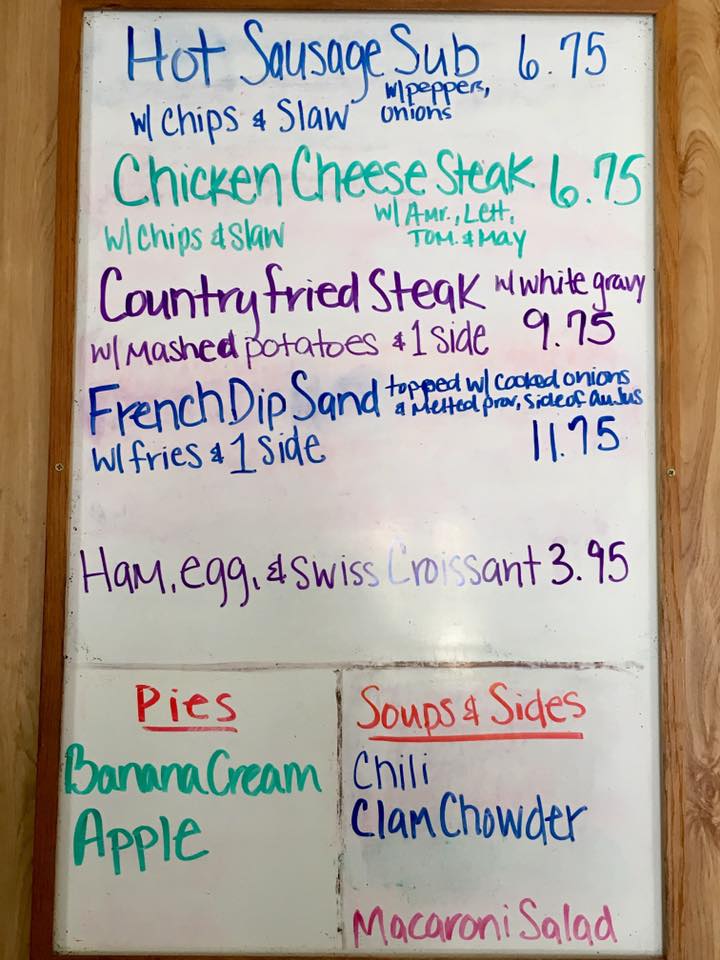 Hot Sausage Sub 6.75
w/ Chips & Slaw w/peppers, onions
Chicken Cheese Steak 6.75
w/ Chips & Slaw w/ Amr., Lett, Tom. & May
Country fried Steak w/ white gravy
w/ Mashed potatoes & 1 side 9.75
French Dip Sand topped w/ Cooked onions & Melted prov, side of Au Jus
w/ fries & 1 side 11.75
Ham, egg, & Swiss Croissant 3.95
Pies
Banana Cream
Apple
Soups & Sides
Chili
Clam Chowder
Macaroni Salad